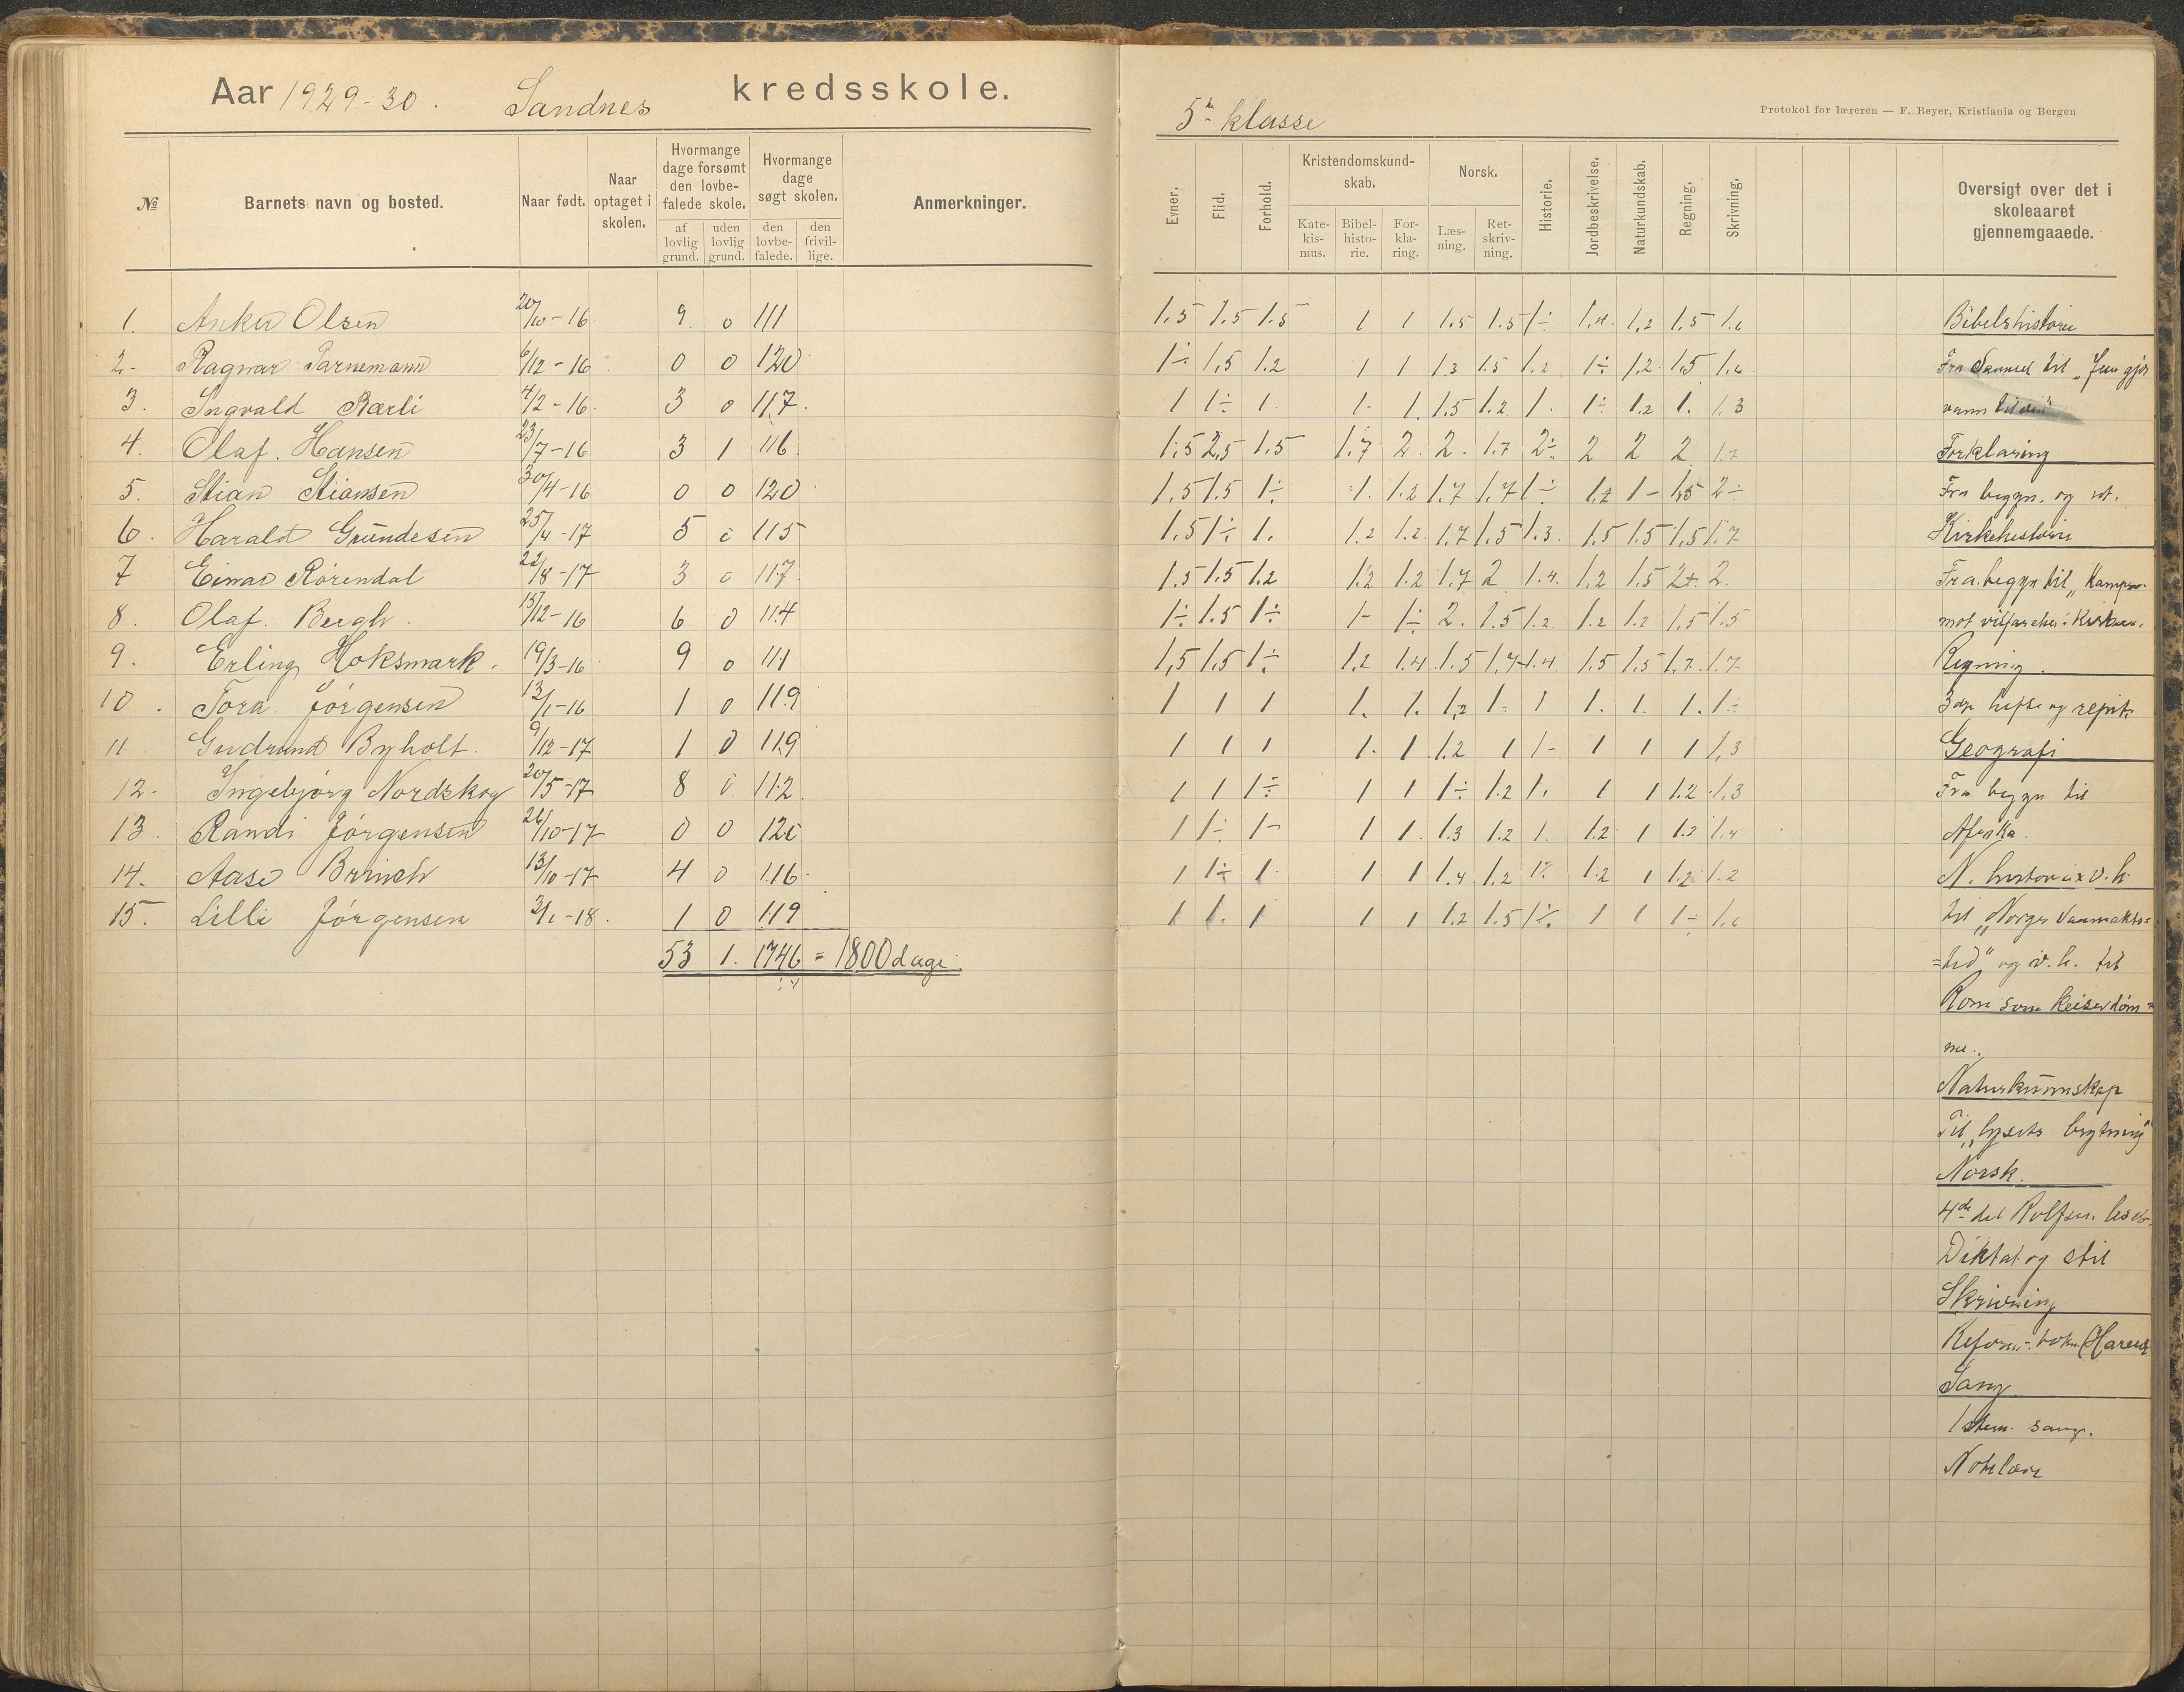 Aar 1929-30. Sandnes kredsskole.
5te klasse
Protokol for læreren — F. Beyer, Kristiania og Bergen
№ Barnets navn og bosted. Naar født. Naar optaget i skolen. Hvormange dage forsømt den lovbefalede skole. Hvormange dage søgt skolen. Anmerkninger.
af lovlig grund. uden lovlig grund. den lovbefalede. den frivillige.
Evner. Flid. Forhold. Kristendomskundskab. Norsk. Historie. Jordbeskrivelse. Naturkundskab. Regning. Skrivning. Oversigt over det i skoleaaret gjennemgaaede.
Katekismus. Bibelhistorie. Forklaring. Læsning. Retskrivning.
1. Anker Olsen 20/10-16 9 0 111 1.5 1.5 1.5 1 1 1.5 1.5 1÷ 1.4 1.2 1.5 1.6
2. Ragnar 6/12-16 0 0 120 1÷ 1,5 1.2 1 1 1.3 1.5 1.2 1÷ 1.2 1.5 1.6
3. Ingvald Rærli 4/2-16 3 0 117 1 1÷ 1 1- 1. 1.5 1.2 1. 1÷ 1.2 1. 1.3
4. Olaf. Hansen 23/7-16 3 1 116 1.5 2,5 1.5 1.7 2 2. 1.7 2÷ 2 2 2 1.7
5. Stian Stiansen 30/4-16 0 0 120 1,5 1.5 1÷ 1. 1.2 1.7 1.7 1÷ 1.2 1- 1,5 2÷
6. Harald Grundesen 25/4-17 5 0 115 1.5 1÷ 1. 1.2 1.2 1.7 1.5 1.3 1.5 1.5 1,5 1.7
7 Einar Rörendal 22/8-17 3 0 117 1.5 1.5 1.2 1.2 1.2 1.7 2 1.4. 1.2 1.5 2+. 2.
8. Olaf. Bergh. 15/12-16 6 0 114 1÷ 1.5 1÷ 1- 1÷ 2. 1.5 1.2 1.2 1.2 1.5 1.5
9. Erling Hoksmark. 19/3-16 9 0 111 1,5 1,5 1÷ 1.2 1.4 1.5 1.7 1.4. 1.5 1.5 1.7 1.7
10. Tora Jörgensen 13/1-16 1 0 119 1 1 1 1. 1. 1,2 1- 1 1. 1. 1. 1÷
11 Gudrund Byholt. 9/12-17 1 0 119 1 1 1 1. 1 1.2 1 1- 1 1 1 1,3
12. Ingebjörg Nordskog 20/5-17 8 0 112 1 1 1÷ 1 1 1÷ 1.2 1. 1 1 1.2 1.3
13. Randi Jörgensen 26/10-17 0 0 120 1 1÷ 1- 1 1. 1.3 1.2 1. 1.2 1 1.2 1.4
14. Aase Brinch 13/10-17 4 0 116 1 1÷ 1 1 1 1.4 1.2 1÷ 1.2 1 1.2 1.2
15. Lilli Jörgensen 3/1-18. 1 0 119 1 1. 1 1 1 1.2 1.5 1÷. 1 1 1÷ 1.6
53 1. 1746 = 1800 dage.
Bibelshistorie
Fra Samuel til „Jesu gjör
vann til vin"
Forklaring
Fra begyn. og ut.
Kirkehistorie
Fra begyn til „Kampen
mot vilfarelser i Kirken.
Regning.
3dje hefte og repit.
Geografi
Fra begyn til
Afrika.
N. historie x v.h.
til „Norges Vanmakts=
=tid" og v.h. til
Rom som keiserdöm=
me.
Naturkunnskap
Til „lysets brytning"
Norsk.
4de del Rolfsen. leseb.
Diktat og stil
Skrivning
Reform-boken
Sang.
1 stem. sang.
Notelære